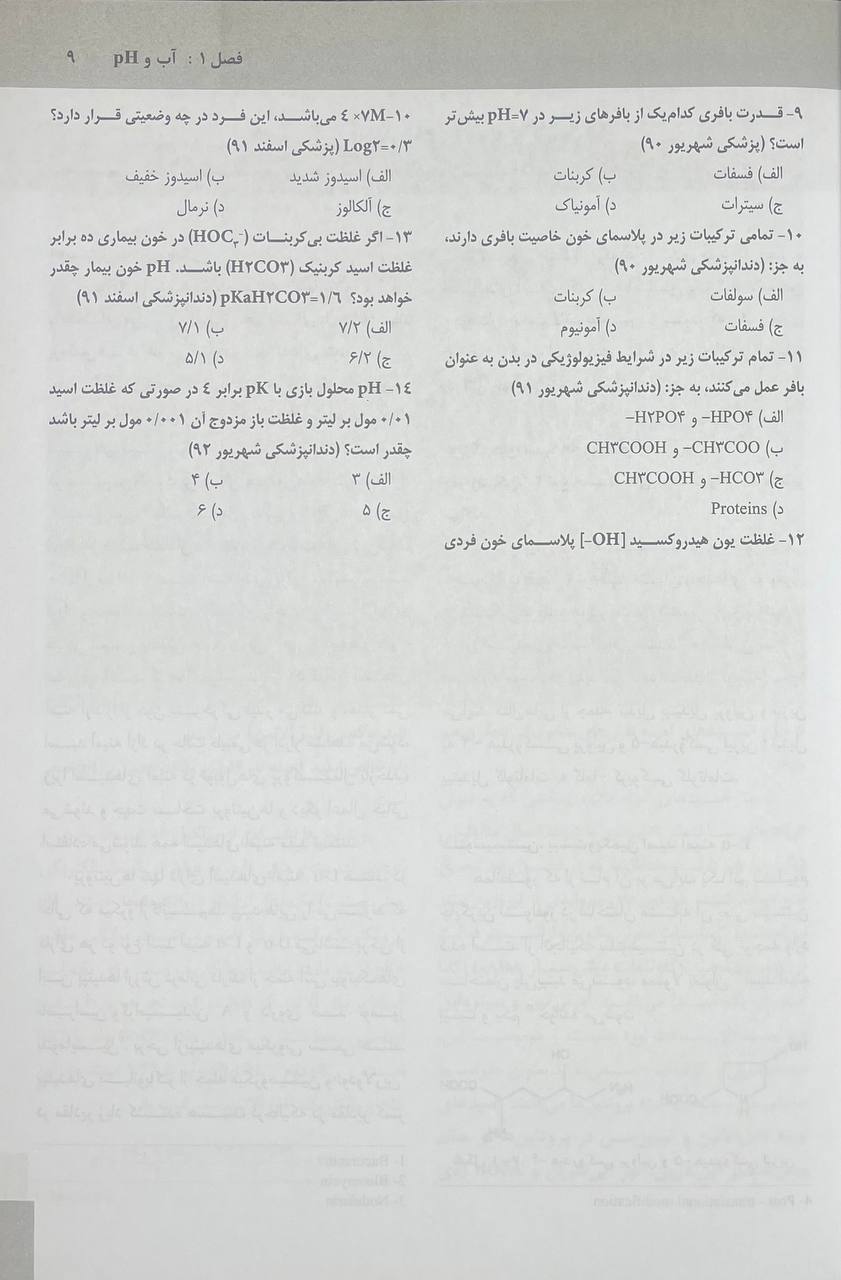 فصل ۱ : آب و pH ۹
۹- قدرت بافری کدام‌یک از بافرهای زیر در pH=۷ بیش‌تر
است؟ (پزشکی شهریور ۹۰)
الف) فسفات ب) کربنات
ج) سیترات د) آمونیاک
۱۰- تمامی ترکیبات زیر در پلاسمای خون خاصیت بافری دارند،
به جز: (دندانپزشکی شهریور ۹۰)
الف) سولفات ب) کربنات
ج) فسفات د) آمونیوم
۱۱- تمام ترکیبات زیر در شرایط فیزیولوژیکی در بدن به عنوان
بافر عمل می‌کنند، به جز: (دندانپزشکی شهریور ۹۱)
الف) HPO۴– و H۲PO۴–
ب) CH۳COO– و CH۳COOH
ج) HCO۳– و CH۳COOH
د) Proteins
۱۲- غلظت یون هیدروکسید [OH–] پلاسمای خون فردی
۴ ×۷M-۱۰ می‌باشد، این فرد در چه وضعیتی قرار دارد؟
Log۲=۰/۳ (پزشکی اسفند ۹۱)
الف) اسیدوز شدید ب) اسیدوز خفیف
ج) آلکالوز د) نرمال
۱۳- اگر غلظت بی‌کربنات (HOC₃⁻) در خون بیماری ده برابر
غلظت اسید کربنیک (H۲CO۳) باشد. pH خون بیمار چقدر
خواهد بود؟ pKaH۲CO۳=۱/۶ (دندانپزشکی اسفند ۹۱)
الف) ۷/۲ ب) ۷/۱
ج) ۶/۲ د) ۵/۱
۱۴- pH محلول بازی با pK برابر ۴ در صورتی که غلظت اسید
۰/۰۱ مول بر لیتر و غلظت باز مزدوج آن ۰/۰۰۱ مول بر لیتر باشد
چقدر است؟ (دندانپزشکی شهریور ۹۲)
الف) ۳ ب) ۴
ج) ۵ د) ۶